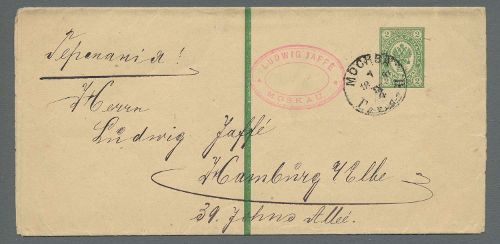 Германія!
LUDWIG JAFFÉ
MOSKAU
МОСКВА
2 2
Herrn
Ludwig Jaffé
Hamburg / Elbe
39. Johns Allée.